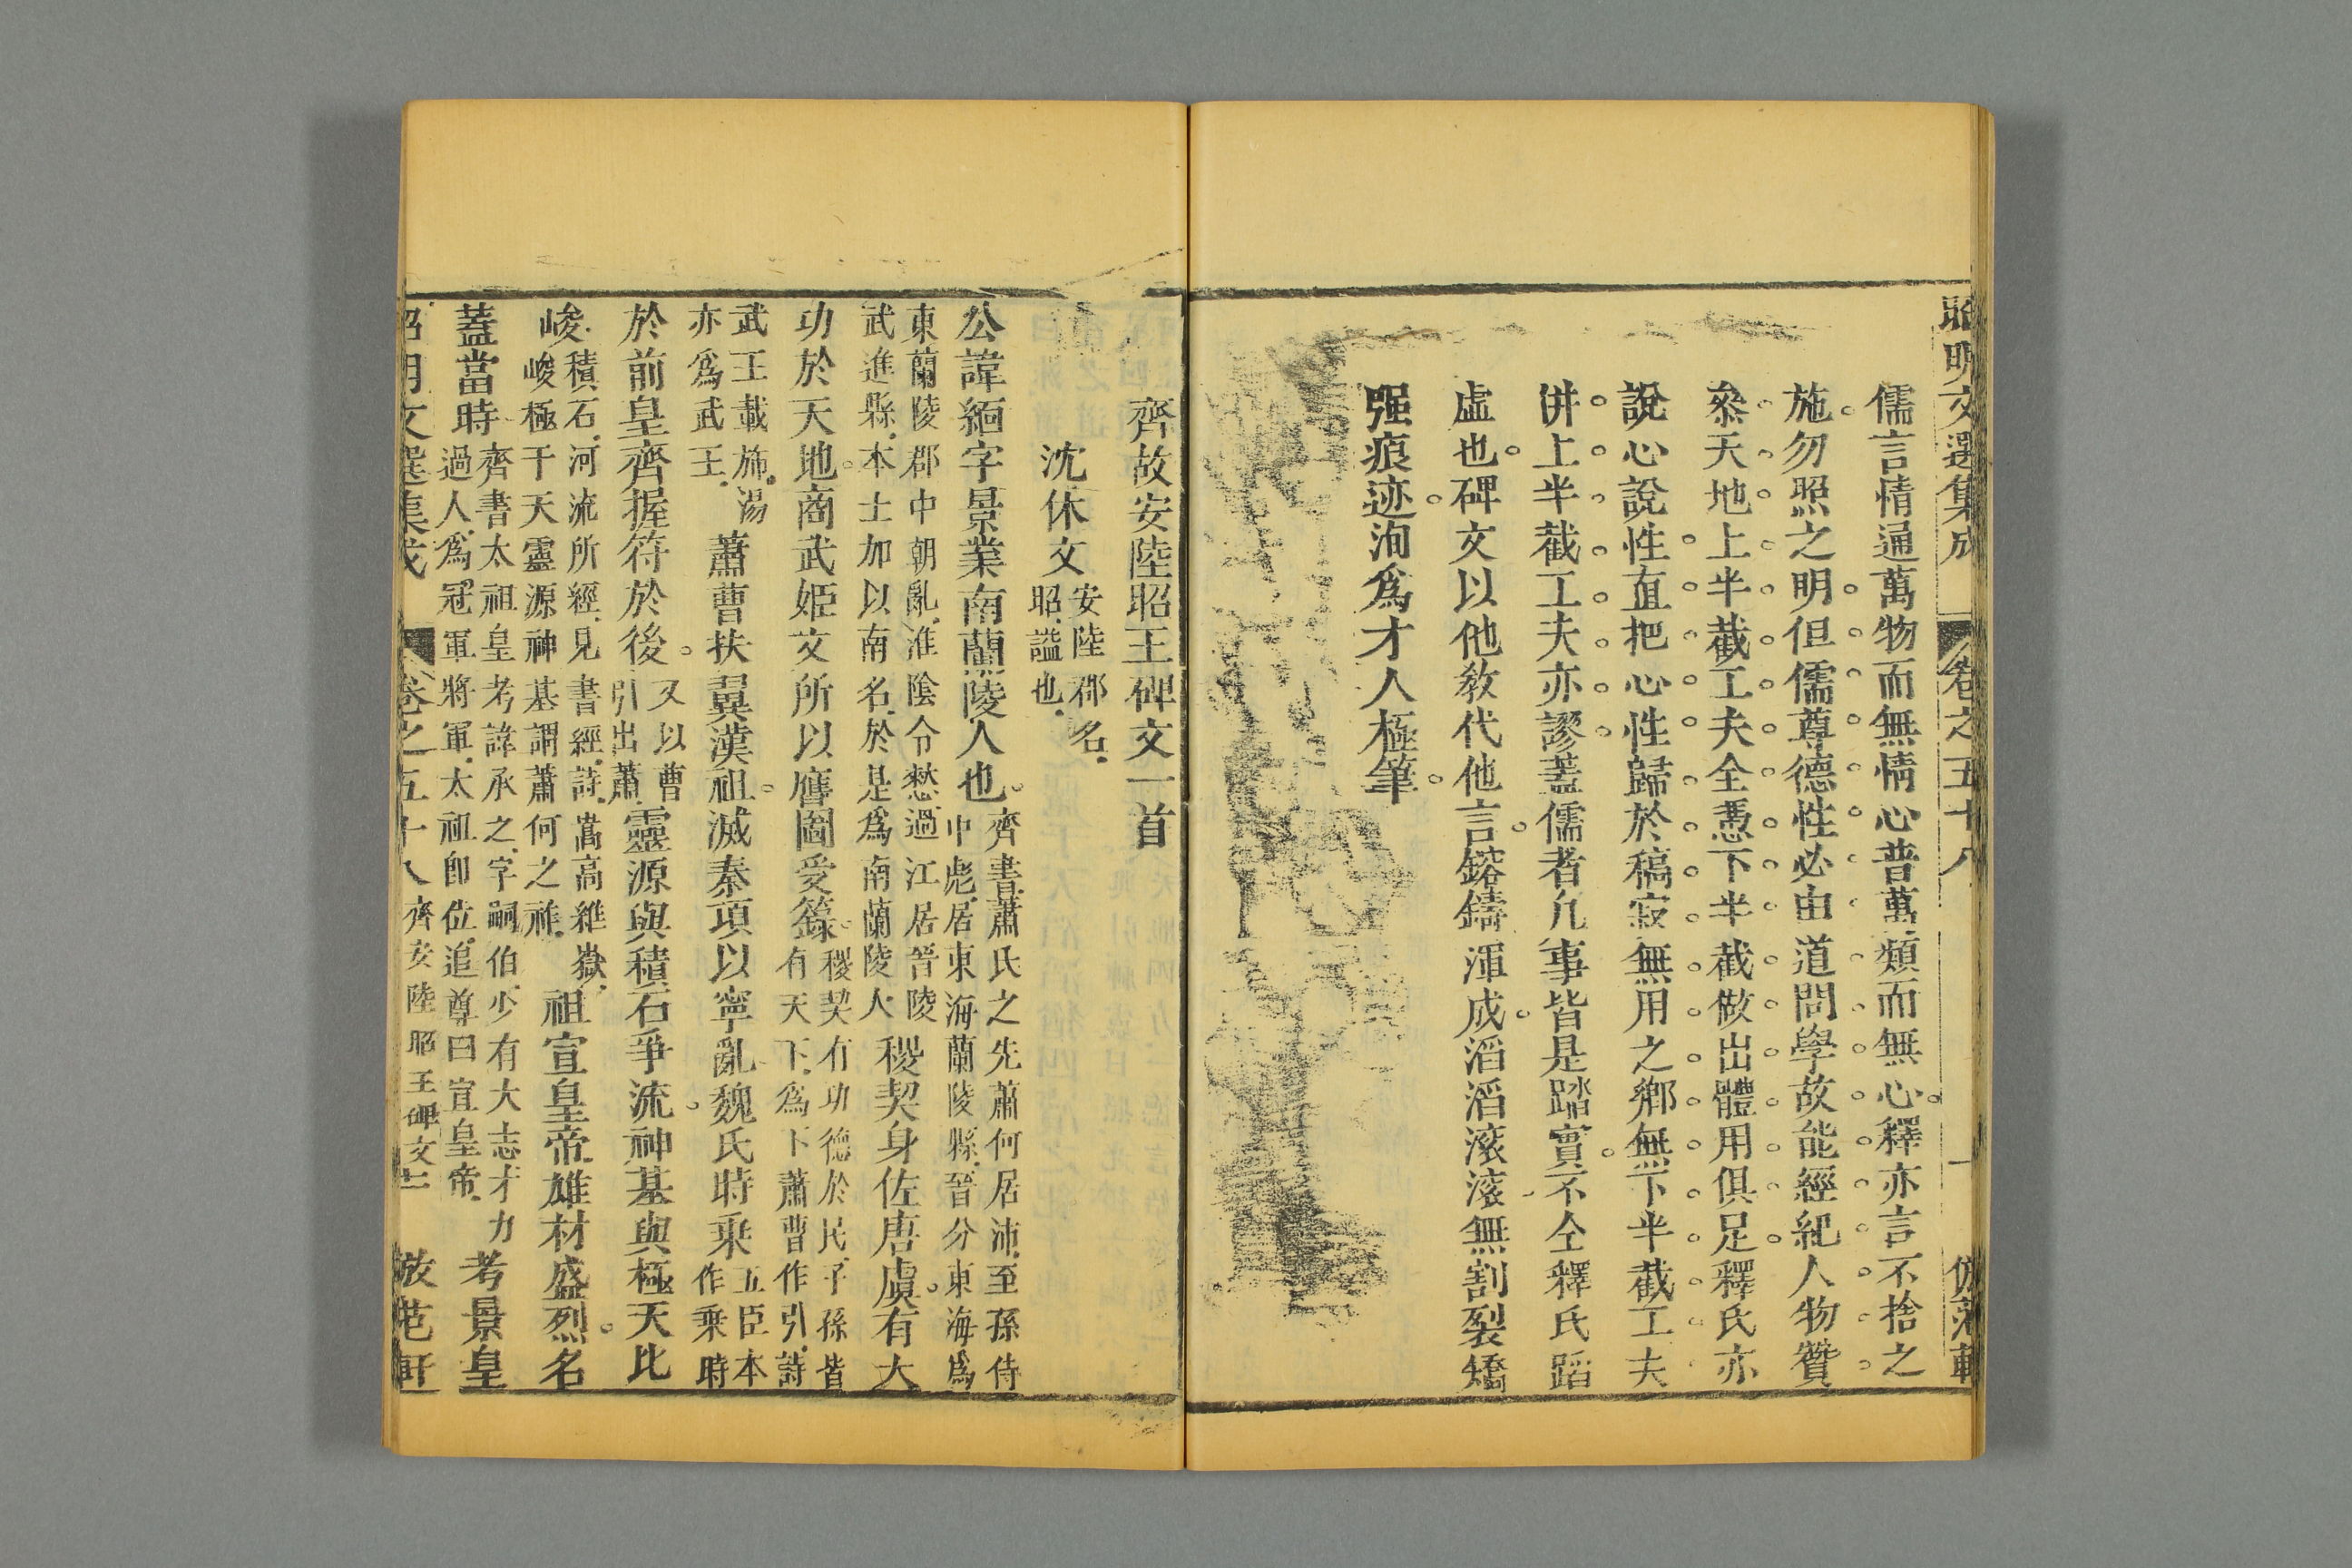 昭明文選集成 卷之五十八 一 倣范軒
儒言情通萬物而無情心普萬類而無心釋亦言不捨之
施勿照之明但儒尊德性必由道問學故能經紀人物贊
叅天地上半截工夫全憑下半截做出體用俱足釋氏亦
說心說性直把心性歸於稿寂無用之鄉無下半截工夫
倂上半截工夫亦謬蓋儒者凡事皆是踏實不仝釋氏蹈
虛也碑文以他敎代他言鎔鑄渾成滔滔滚滚無割裂矯
强痕迹洵爲才人極筆
齊故安陸昭王碑文一首
沈休文 安陸郡名
昭謚也
公諱緬字景業南蘭陵人也 齊書蕭氏之先蕭何居沛至孫侍
中彪居東海蘭陵縣晉分東海爲
東蘭陵郡中朝亂淮陰令憖過江居晉陵
武進縣本土加以南名於是爲南蘭陵人 稷契身佐唐虞有大
功於天地商武姬文所以膺圖受籙 稷契有功德於民子孫皆
有天下爲下蕭曹作引詩
武王載斾湯
亦爲武王 蕭曹扶翼漢祖滅秦項以寧亂魏氏時乗 五臣本
作乗時
於前皇齊握符於後 又以曹
引出蕭 靈源與積石爭流神基與極天比
峻 積石河流所經見書經詩嵩高維嶽
峻極于天靈源神基謂蕭何之祚 祖宣皇帝雄材盛烈名
蓋當時 齊書太祖皇考諱承之字嗣伯少有大志才力
過人爲冠軍將軍太祖卽位追尊曰宣皇帝 考景皇
昭明文選集成 卷之五十八 齊安陸昭王碑文 二 倣范軒